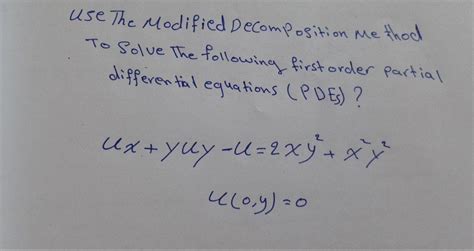 use The Modified Decomposition Method
To Solve The following first order partial
differential equations (PDEs) ?
Ux + yUy - U = 2xy² + x²y²
U(0,y) = 0